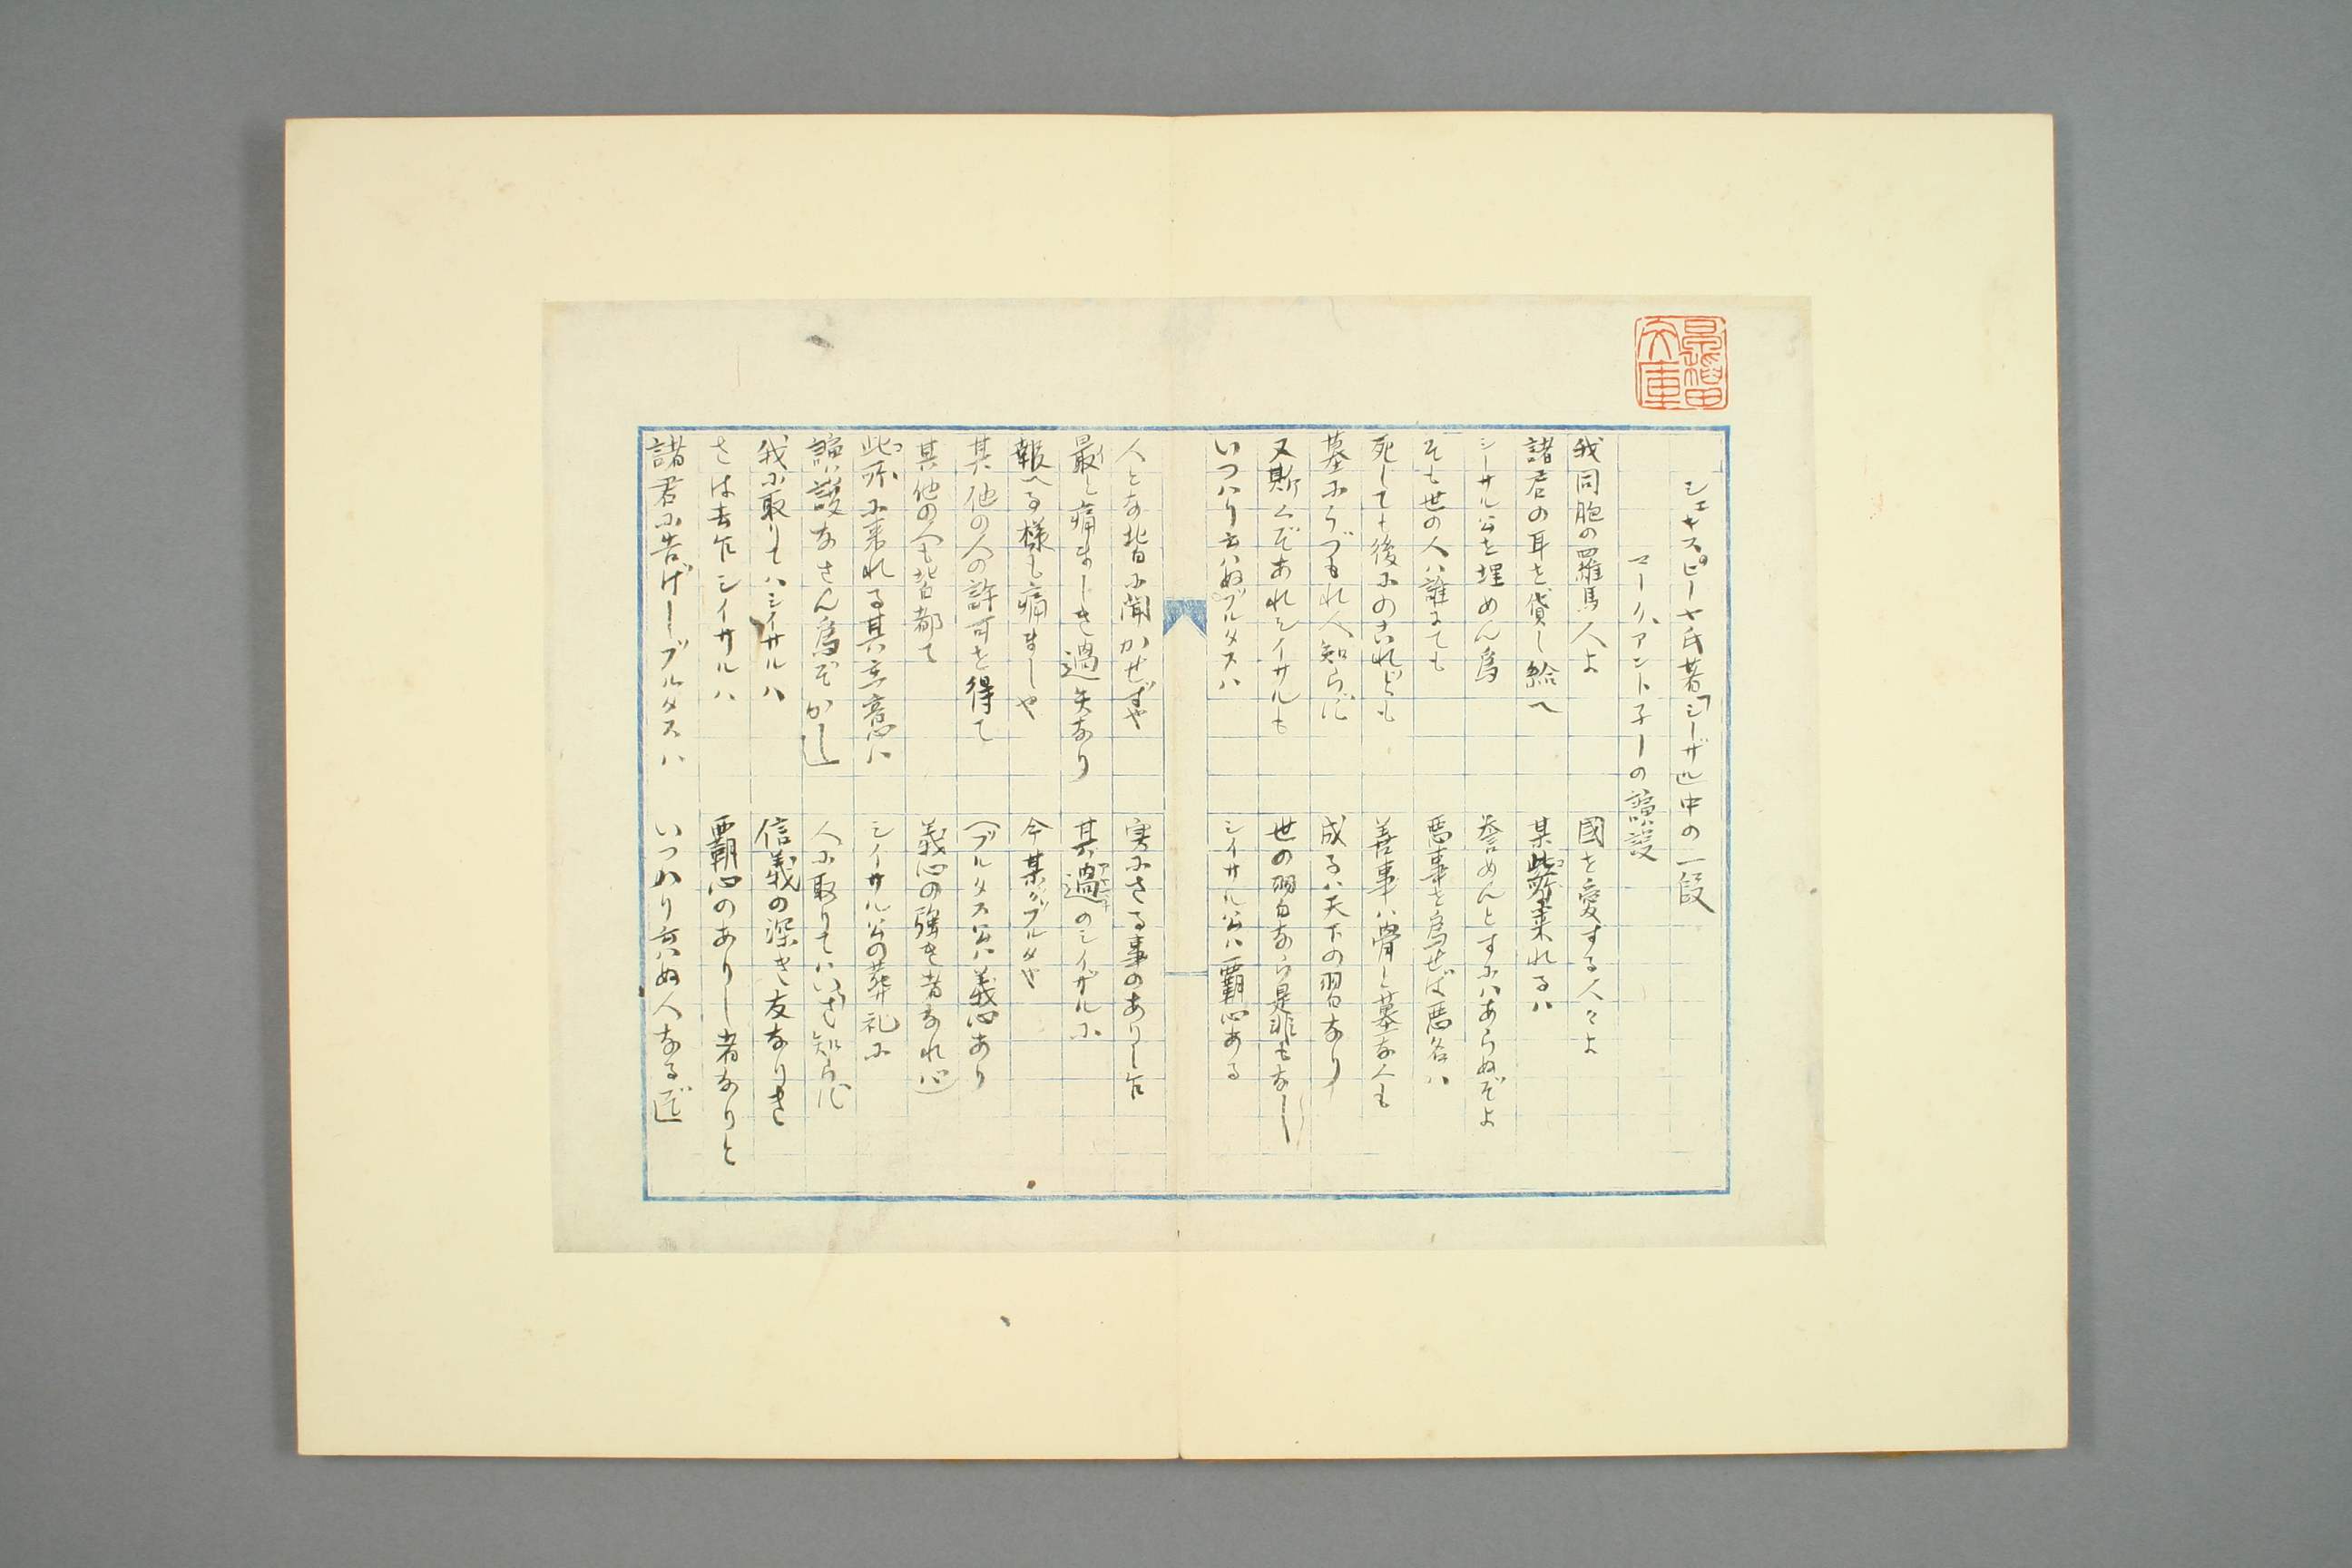 シェキスピーヤ氏著「シーザル」中の一段
マーク、アントニーの演説
我同胞の羅馬人よ 國を愛する人々よ
諸君の耳を貸し給へ 某此所に来れるハ
シーサル公を埋めん為 誉めんとすにハあらぬぞよ
そも世の人ハ誰にても 悪事を為せば悪名ハ
死してゝ後にのこれども 善事ハ骨と墓なくも
墓にうづもれ人知らず 成るハ天下の習なり
又斯くぞあれシイサルも 世の習なら是非もなし
いつハり云ハぬブルタスハ シイサル公ハ覇心ある
人とな皆に聞かせずや 実にさる事のありし乍
最と痛ましき過失なり 其過のシイザルに
報へる様も痛ましや 今某がブルタや
其他の人の許可を得て (ブルタス公ハ義心あり
其他の人も皆都て 義心の強き者なれバ)
此所に来れる其意ハ シイサル公の葬礼に
演説なさん為ぞかし」 人に取りてハいざ知らず
我に取りてハシイサルハ 信義の深き友なりき
さは去乍シイサルハ 覇心のありし者なりと
諸君に告げしブルタスハ いつわり云ハぬ人なるぞ」